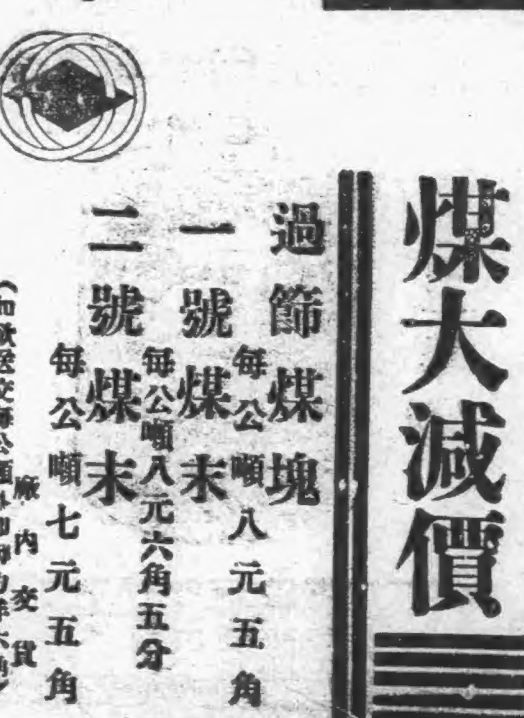 煤大減價
過篩煤塊
每公噸八元五角
一號煤末
每公噸八元六角五分
二號煤末
每公噸七元五角
廠內交貨